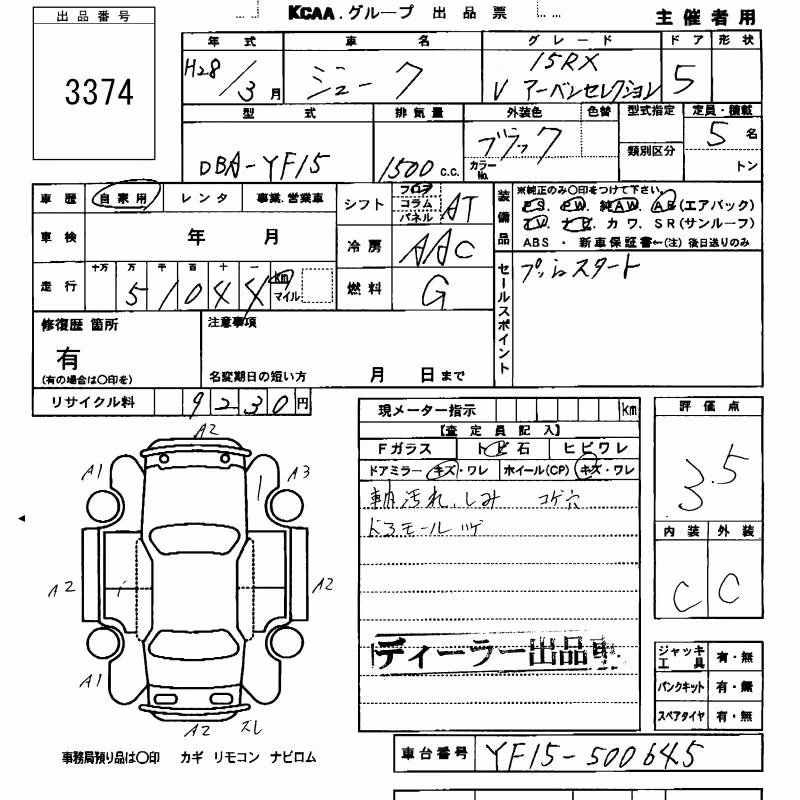 出品番号
3374
KCAA.グループ 出品票
主催者用
年式 車名 グレード ドア 形状
H28/3月 ジューク 15RX 5
V アーバンセレクション
型式 排気量 外装色 色替 型式指定 定員・積載
DBA-YF15 1500c.c. ブラック カラーNo. 類別区分 5名
トン
車歴 自家用 レンタ 事業.営業車 シフト フロア コラム パネル AT
装備品 ※純正のみ〇印をつけて下さい。
PS. PW. 純AW. AB(エアバック)
TV. ナビ. カワ. SR(サンルーフ)
ABS ・ 新車保証書←(注)後日送りのみ
車検 年 月 冷房 AAC
走行 十万 万 千 百 十 一 km マイル
51044
燃料 G
セールスポイント プッシュスタート
修復歴 箇所
有
(有の場合は〇印を)
注意事項
名変期日の短い方 月 日まで
リサイクル料 9230円
現メーター指示 km
【査定員記入】
Fガラス トビ石 ヒビワレ
ドアミラー キズ・ワレ ホイール(CP) キズ・ワレ
車内汚れ、しみ コゲ穴
ドアモール
ディーラー出品車
評価点
3.5
内装 外装
C C
A2
A1 A3
A2 A2
A1
A2 スレ
ジャッキ工具 有・無
パンクキット 有・無
スペアタイヤ 有・無
事務局預り品は〇印 カギ リモコン ナビロム
車台番号 YF15-500645